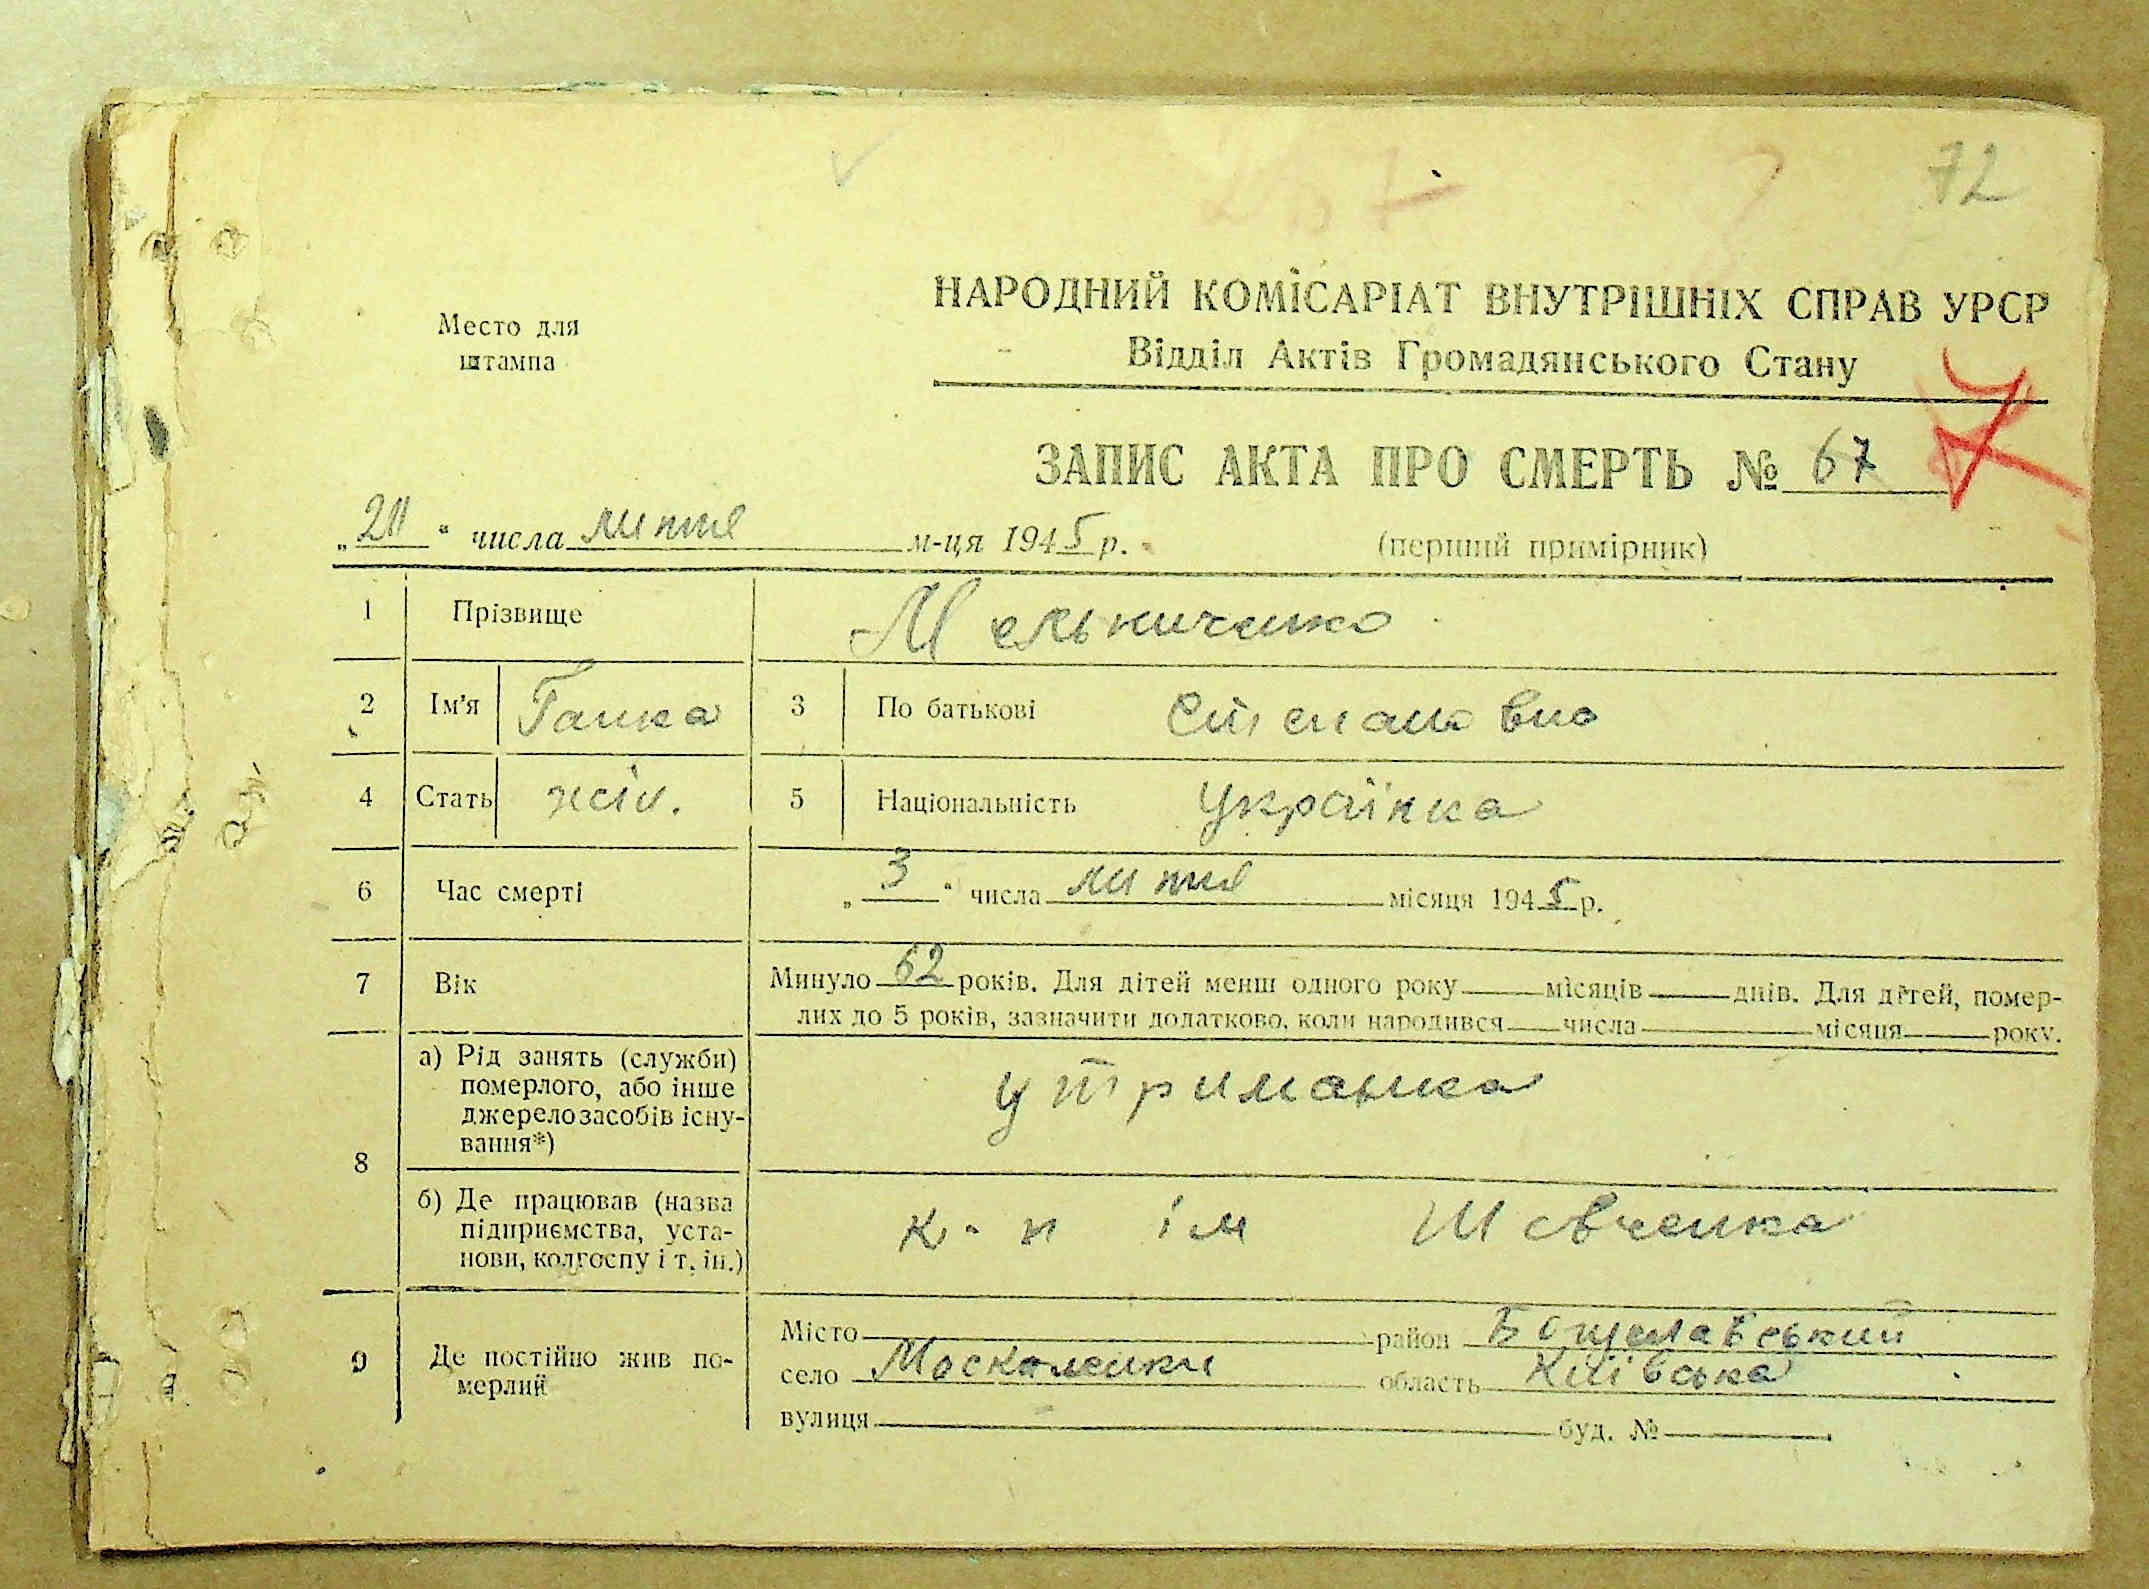 72
НАРОДНИЙ КОМІСАРІАТ ВНУТРІШНІХ СПРАВ УРСР
Место для
штампа
Відділ Актів Громадянського Стану
ЗАПИС АКТА ПРО СМЕРТЬ № 67
" числа липня м-ця 1945 р. (перший примірник)
1 Прізвище Мельниченко
2 Ім'я Ганка 3 По батькові Степановна
4 Стать жін. 5 Національність Українка
6 Час смерті „3“ числа липня місяця 1945 р.
7 Вік Минуло 62 років. Для дітей менш одного року місяців днів. Для дітей, помер-
лих до 5 років, зазначити додатково, коли народився числа місяця року.
8 а) Рід занять (служби)
померлого, або інше
джерело засобів існу-
вання*) утриманка
б) Де працював (назва
підприємства, уста-
нови, колгоспу і т. ін.) к-п ім Шевченка
9 Де постійно жив по-
мерлий
Місто район
село Москаленки область Київська
вулиця буд. №